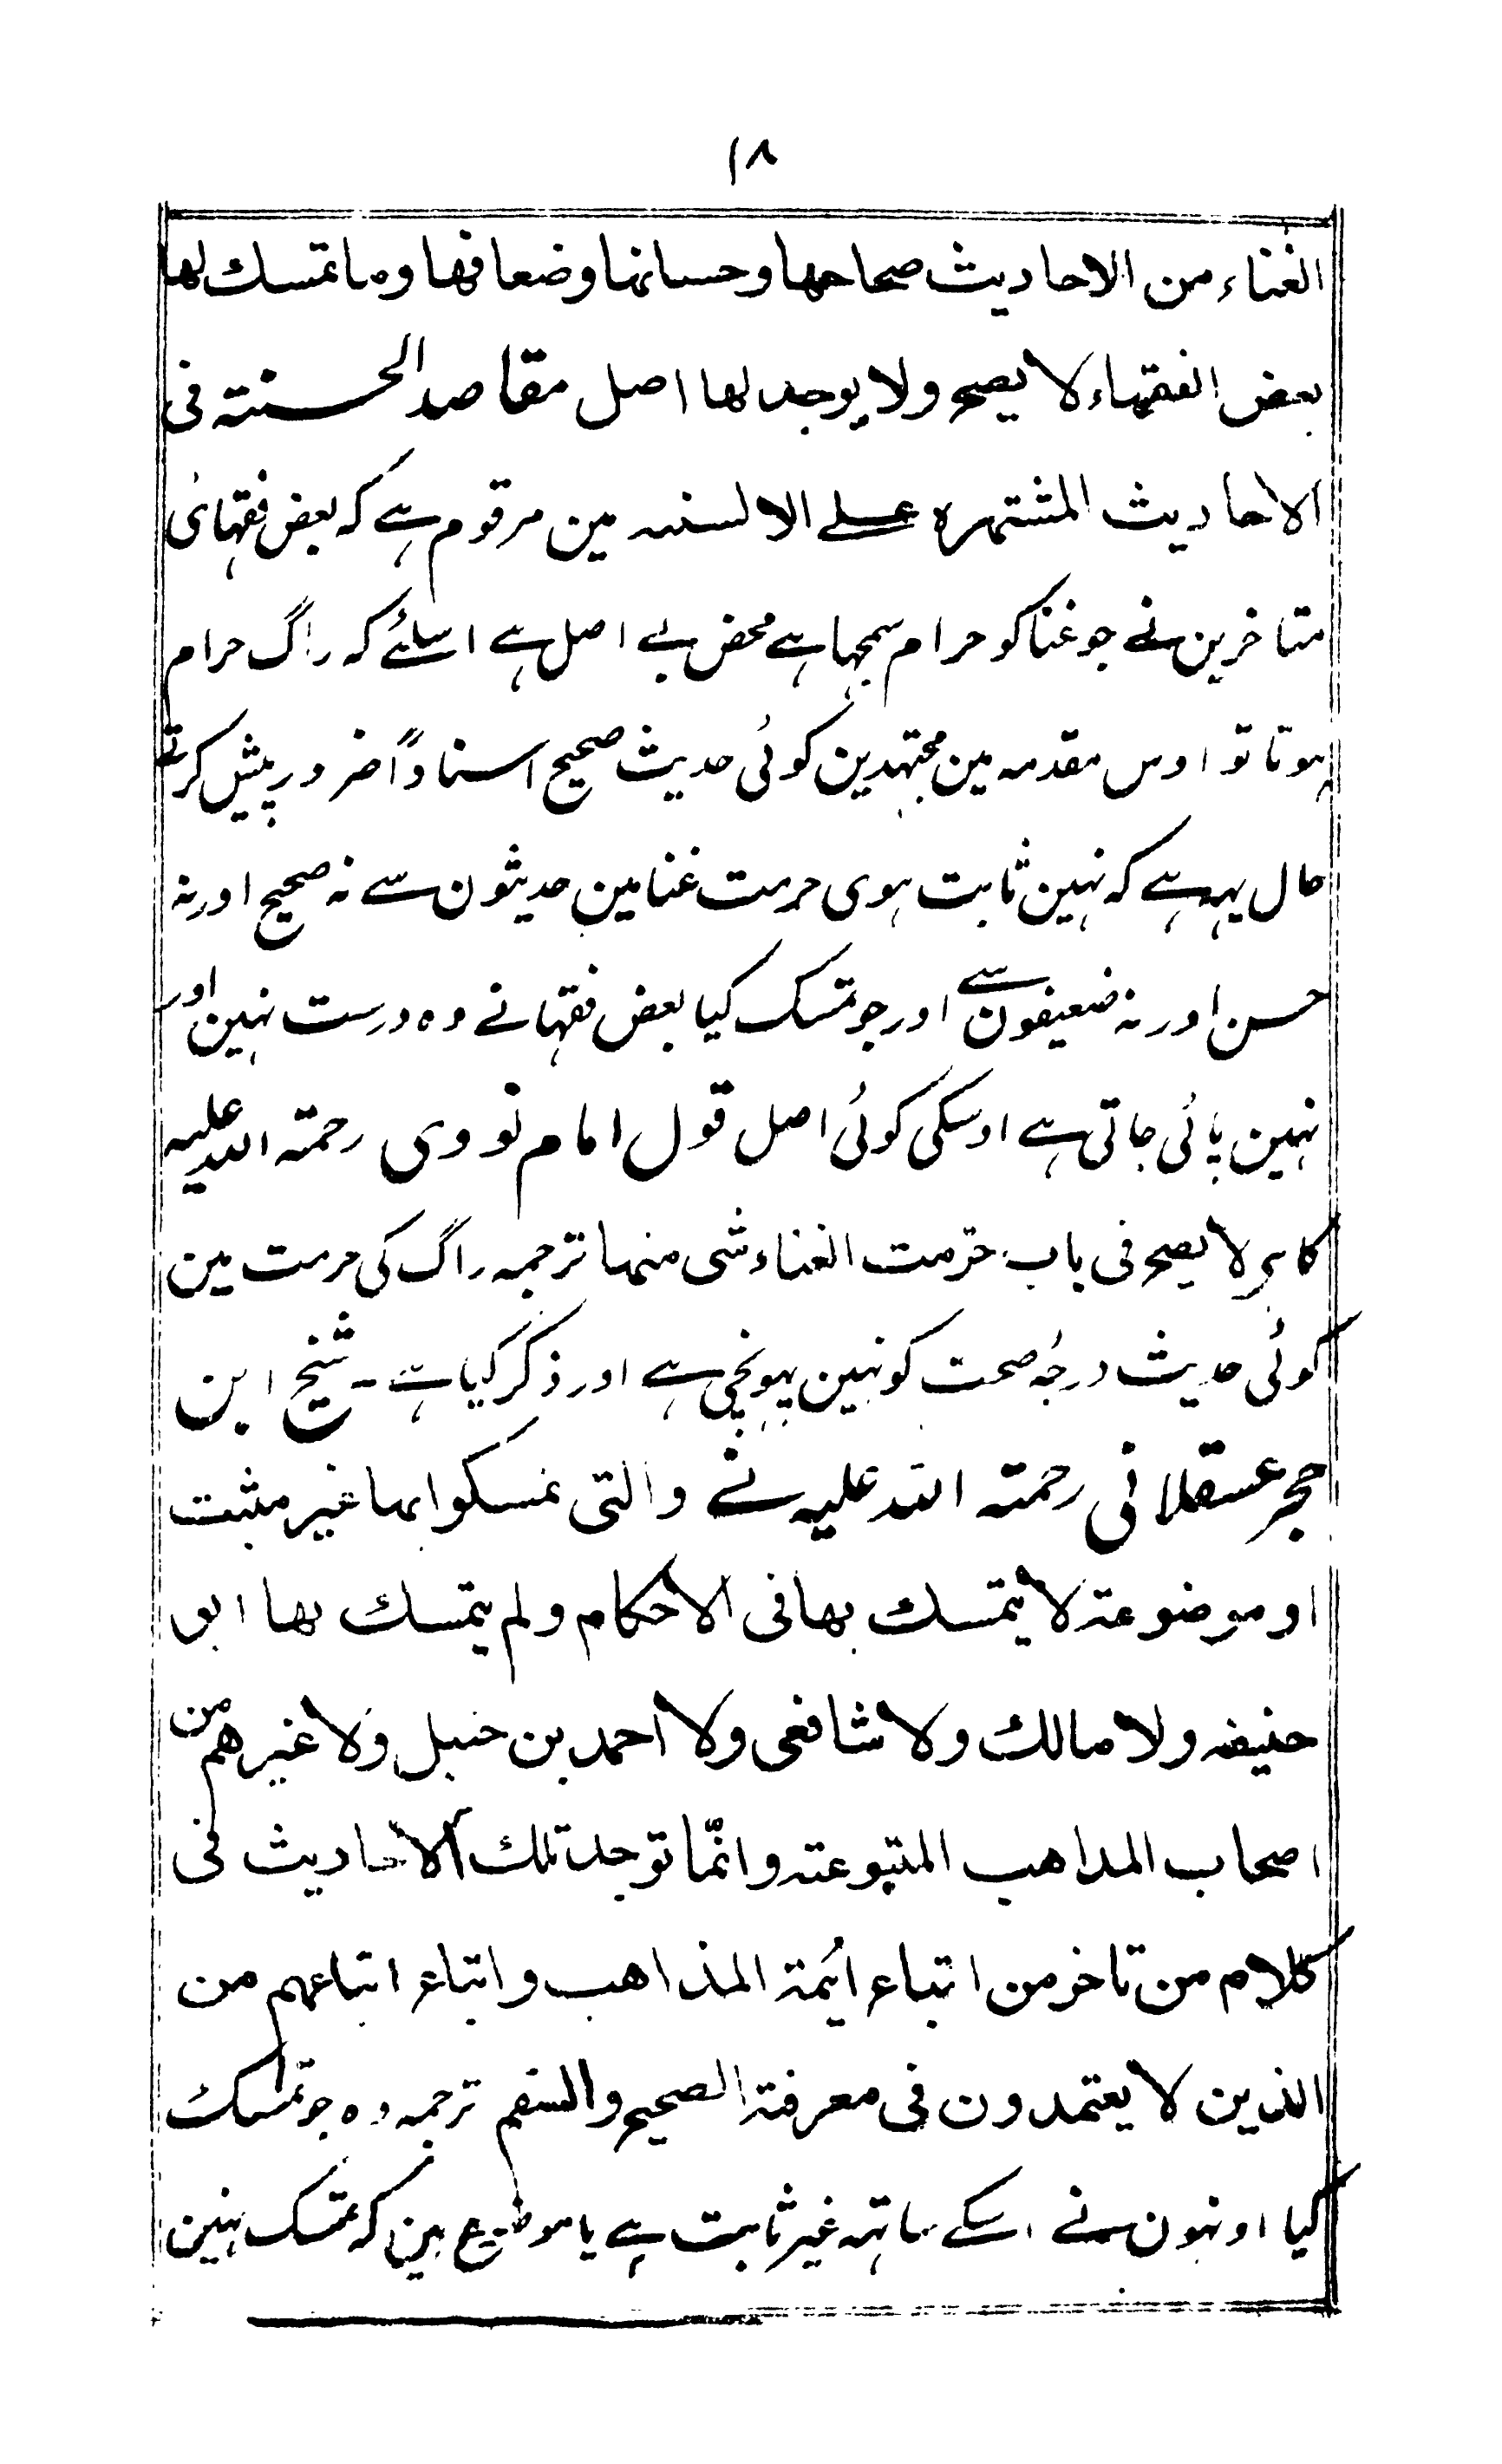 ۱۸
الغناء من الاحادیث صحاحها وحسانها وضعافها وما تمسك لها
بعض الفقهاء لا یصح ولا یوجد لها اصل مقاصد الحسنته فی
الاحادیث المشتهره علے الالسنه مین مرقوم ہے کہ بعض فقہائی
متاخرین نے جو غنا کو حرام سمجہا ہے محض بے اصل ہے اسلئے کہ راگ حرام
ہوتا تو اوس مقدمہ مین مجتہدین کوئی حدیث صحیح اسناداً ضرور پیش کرتے
حال یہہ ہے کہ نہین ثابت ہوی حرمت غنا مین حدیثون سے نہ صحیح اور نہ
حسن اور نہ ضعیفون سے اور جو تمسک کیا بعض فقہا نے وہ درست نہین اور
نہین پائی جاتی ہے اوسکی کوئی اصل قول امام نووی رحمتہ اللہ علیہ
کا ہی لا یصح فی باب حرمت الغناء شی منها ترجمہ راگ کی حرمت مین
کوئی حدیث درجہٴ صحت کو نہین پہونچی ہے اور ذکر کیا ہے ـ شیخ ابن
حجر عسقلانی رحمتہ اللہ علیہ نے والتی تمسکوا بها غیر مثبت
او موضوعة لا یتمسك بها فی الاحکام ولم یتمسك بها ابو
حنیفہ ولا مالك ولا شافعی ولا احمد بن حنبل ولا غیرهم من
اصحاب المذاهب المتبوعته وانّما توجد تلك الاحادیث فی
کلام من تاخر من اتباع ائمة المذاهب واتباع اتباعهم من
الذین لا یعتمدون فی معرفة الصحیح والسقم ترجمہ وہ جو تمسک
کیا اونہون نے اسکے ساتہہ غیر ثابت ہے یا موضوع ہین کہ تمسک نہین